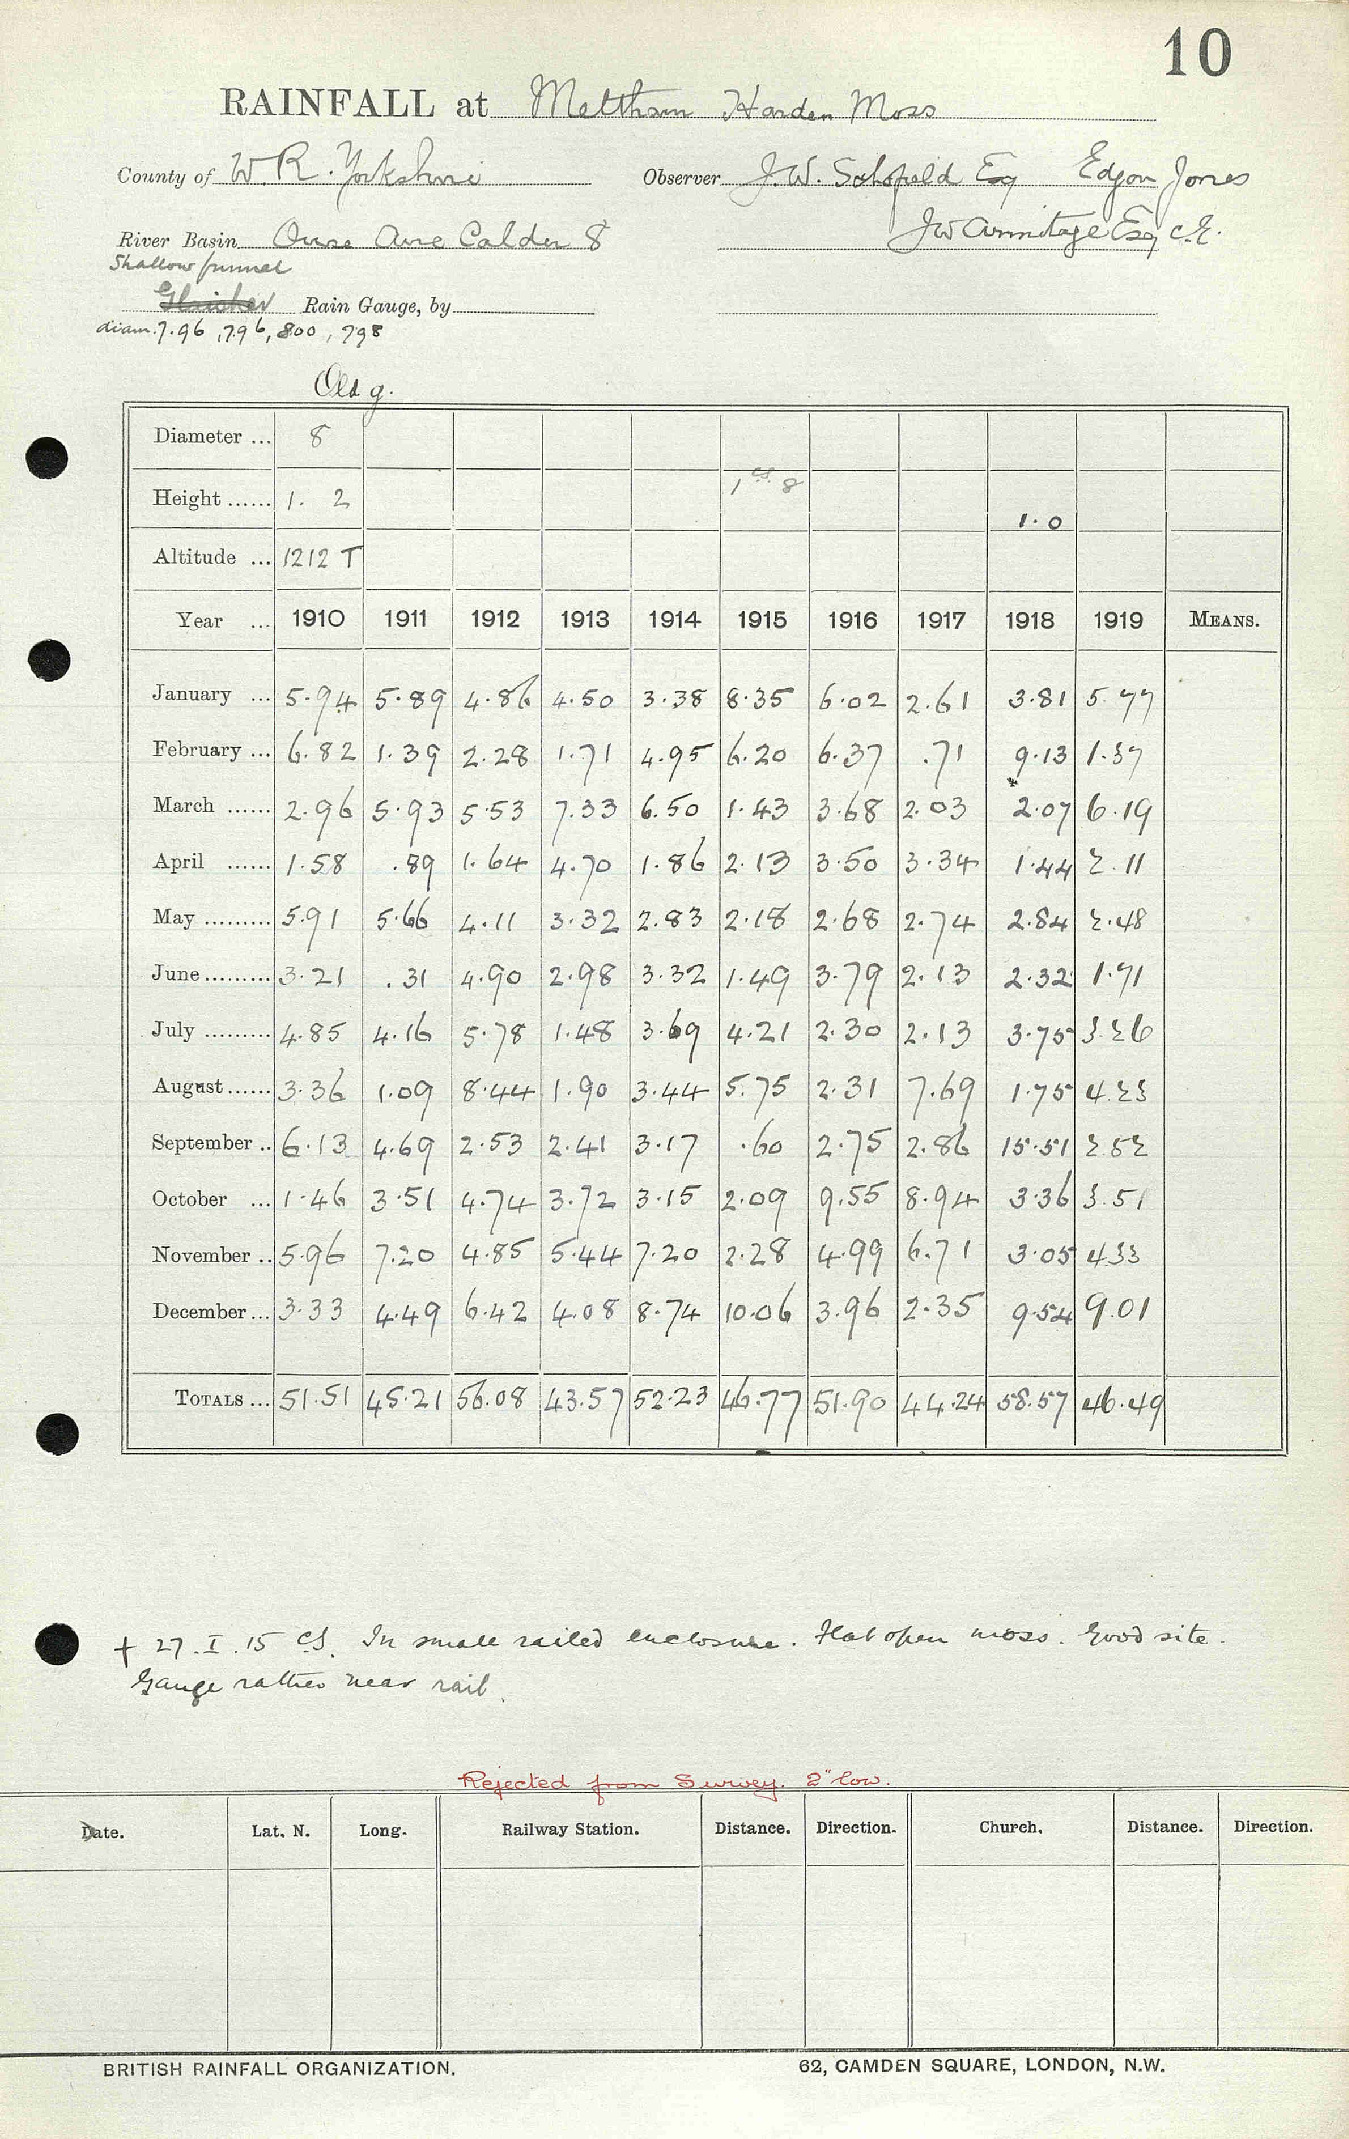 10
RAINFALL at Meltham Harden Moss
County of W.R. Yorkshire Observer J.W. Schofield Esq Edgon Jones
River Basin Ouse Aire Calder 8 JW Armitage Esq C.E.
Shallow funnel
Rain Gauge, by
diam. 7.96, 7.96, 8.00, 7.98
Old g.
Diameter ... 8
Height ...... 1. 2 1 cs. 8 1.0
Altitude ... 1212 T
Year ... 1910 1911 1912 1913 1914 1915 1916 1917 1918 1919 MEANS.
January ... 5.94 5.89 4.86 4.50 3.38 8.35 6.02 2.61 3.81 5.77
February ... 6.82 1.39 2.28 1.71 4.95 6.20 6.37 .71 9.13 1.37
March ...... 2.96 5.93 5.53 7.33 6.50 1.43 3.68 2.03 2.07 6.19
April ...... 1.58 .89 1.64 4.70 1.86 2.13 3.50 3.34 1.44 2.11
May ......... 5.91 5.66 4.11 3.32 2.83 2.18 2.68 2.74 2.84 2.48
June ......... 3.21 .31 4.90 2.98 3.32 1.49 3.79 2.13 2.32 1.71
July ......... 4.85 4.16 5.78 1.48 3.69 4.21 2.30 2.13 3.75 3.26
August ...... 3.36 1.09 8.44 1.90 3.44 5.75 2.31 7.69 1.75 4.23
September .. 6.13 4.69 2.53 2.41 3.17 .60 2.75 2.86 15.51 2.52
October ... 1.46 3.51 4.74 3.72 3.15 2.09 9.55 8.94 3.36 3.51
November .. 5.96 7.20 4.85 5.44 7.20 2.28 4.99 6.71 3.05 4.33
December ... 3.33 4.49 6.42 4.08 8.74 10.06 3.96 2.35 9.54 9.01
TOTALS ... 51.51 45.21 56.08 43.57 52.23 46.77 51.90 44.24 58.57 46.49
+ 27.I.15 CS. In small railed enclosure. Flat open moss. Good site.
Gauge rather near rail.
Rejected from Survey. 2" low.
Date. Lat. N. Long. Railway Station. Distance. Direction. Church. Distance. Direction.
BRITISH RAINFALL ORGANIZATION. 62, CAMDEN SQUARE, LONDON, N.W.